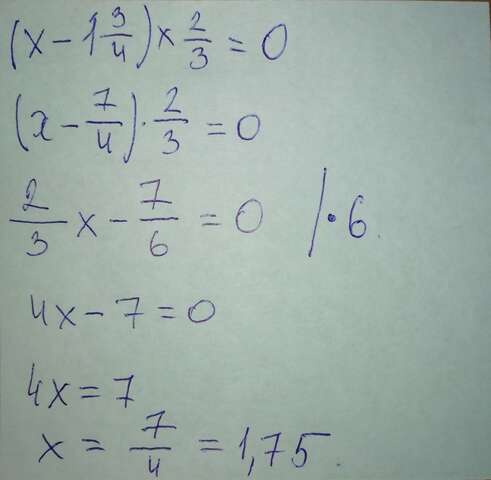 (x − 1 3/4) × 2/3 = 0
(x − 7/4) · 2/3 = 0
2/3 x − 7/6 = 0 | · 6.
4x − 7 = 0
4x = 7
x = 7/4 = 1,75.